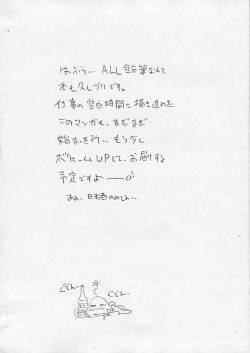 はふぅ… ALL鉛筆なんて
ホも久しブリです。
仕事の空白時間に描き進めた
このマンガも、まだまだ
始まった所… もう少し
ボリュームUPして、お届けする
予定ですよ——
あぁ… 日本酒のみてぇ…
ぐでん
ぐでん